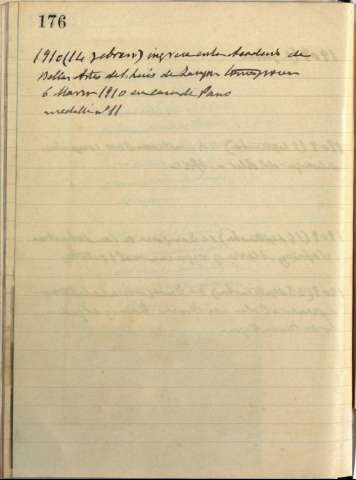 176
1910 (14 febrero) ingrese en la Academia de
Bellas Artes de S. Luis de Zaragoza
6 Marzo 1910 en casa de Pano
medalla nº 11